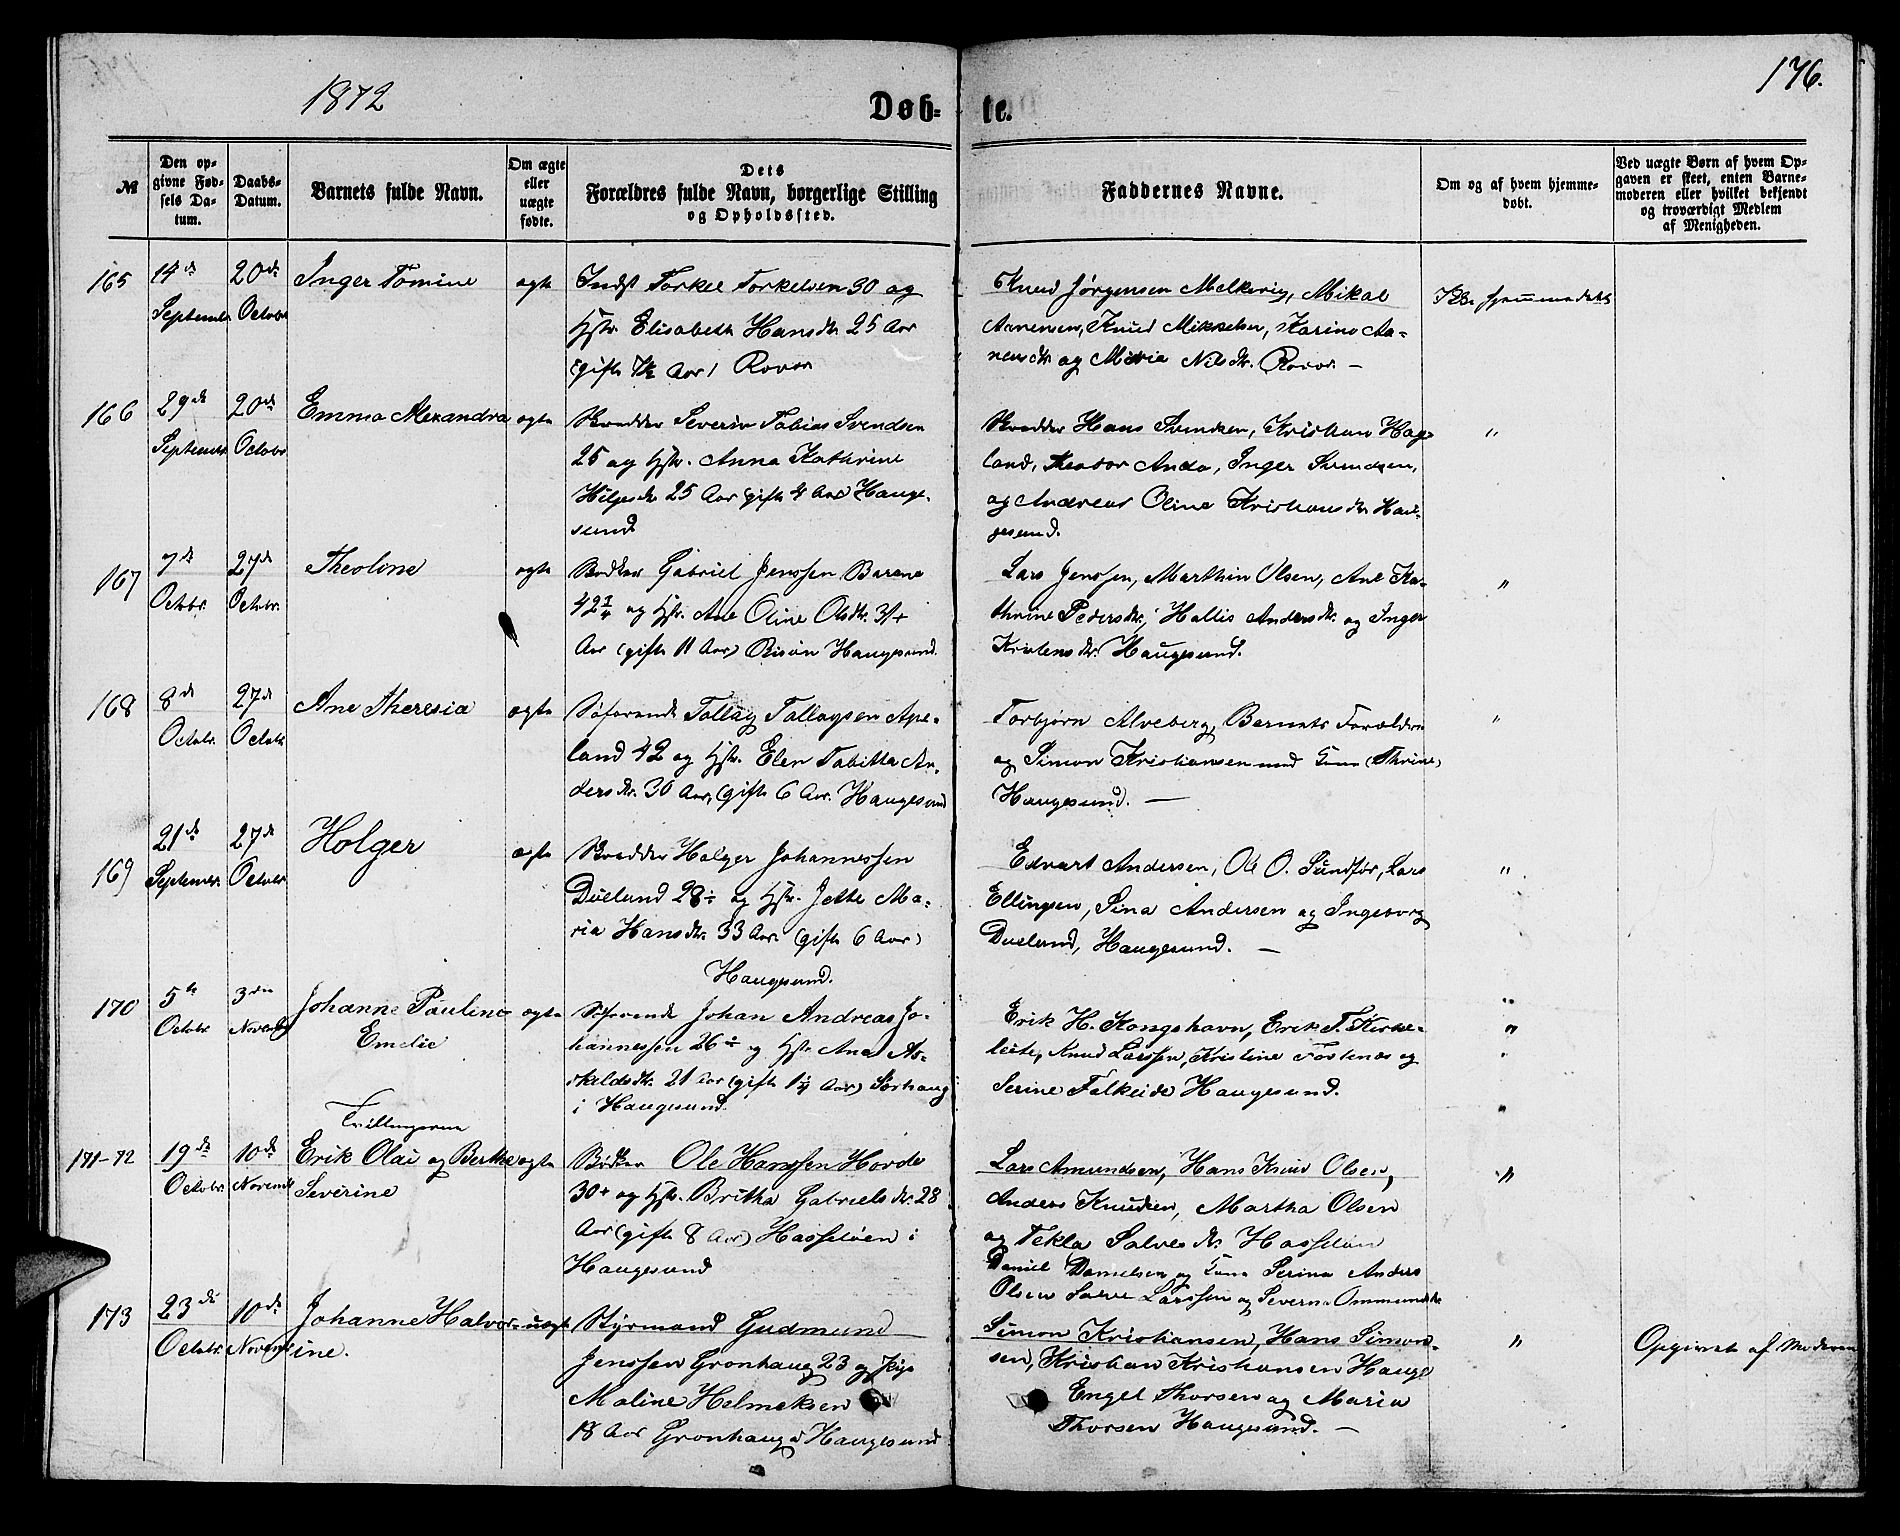 1872
176.
Døb- te.
№
Den op-
givne Fød-
sels Da-
tum.
Daabs-
Datum.
Barnets fulde Navn.
Om ægte
eller
uægte
fødte.
Dets
Forældres fulde Navn, borgerlige Stilling
og Opholdssted.
Faddernes Navne.
Om og af hvem hjemme-
døbt.
Ved uægte Børn af hvem Op-
gaven er skeet, enten Barne-
moderen eller hvilket bekjendt
og troværdigt Medlem
af Menigheden.
165
14de
Septembr
20de
Octobr
Inger Tomine
ægte
Indst Torkel Torkelsen 30 og
Hstr. Elisabeth Hansdtr. 25 Aar
(gifte Aar) Rovær
Knud Jørgensen Melkevig, Mikal
Aanensen, Knud Mikkelsen, Karine Aa-
nensdtr og Maria Nilsdtr. Rovær. —
Ikke hjemmedøbt
166
29de
Septembr
20de
Octobr
Emma Alexandra
ægte
Skrædder Severin Tobias Svendsen
25 og Hstr. Anna Kathrine
25 Aar (gifte 4 Aar) Hauge-
sund
Skrædder Hans Svendsen, Kristian Hage-
land, Theodor Anda, Inger Svendsen,
og Andrea Oline Kristiansdtr Hau-
gesund.
"
167
7de
Octobr.
27de
Octobr.
Theoline
ægte
Bødker Gabriel Jenssen Barane
42 og Hstr. Ane Oline Olsdtr. 34
Aar (gifte 11 Aar) Risøen Haugesund.
Lars Jenssen, Marthin Olsen, Ane Ka-
thrine Pedersdtr., Hallis Andersdtr. og Inger
Kristensdtr. Haugesund.
"
168
8de
Octobr.
27de
Octobr
Ane Theresia
ægte
Søfarende Tollag Tollagsen Ape-
land 42 og Hstr. Elen Tabitta An-
dersdtr. 30 Aar, (gifte 6 Aar. Haugesund
Torbjørn Alveberg, Barnets Forældre
og Simon Kristiansen med Kone (Thrine)
Haugesund. —
"
169
21de
Septembr.
27de
Octobr
Holger
ægte
Skrædder Holger Johannessen
Dueland 28 og Hstr. Jette Ma-
ria Hansdtr. 33 Aar. (gifte 6 Aar)
Haugesund.
Edvart Andersen, Ole O. Sundfør, Lars
Ellingsen, Sina Andersen og Ingeborg
Dueland, Haugesund. —
"
170
5te
Octobr
3die
Novembr
Johanne Pauline
Emelie
ægte
Søfarende Johan Andreas Jo-
hannessen 26 og Hstr Ane As-
skeldsdtr. 21 Aar (gifte Aar) Sørhaug
i Haugesund.
Erik H. Kongshavn, Erik T. Kirke-
leite, Knud Larssen, Kristine Fosenæs og
Serine Falkeide Haugesund.
"
"
"
Tvillingerne
171-72
19de
Octobr
10de
Novembr
Erik Olai og Berthe
Severine
ægte
Bødker Ole Hanssen Hovde
30 og Hstr. Britha Gabrielsdtr. 28
Aar (gifte 8 Aar) Hasseløen i
Haugesund
Lars Amundsen, Hans Knud Olsen,
Anders Knudsen, Martha Olsen
og Tekla Salvesdtr. Hasseløen
Daniel Danielsen og Kone Serina Anders
Olsen Salve Larssen og Severine Ommundsdtr
"
173
23de
Octobr.
10de
Novembr
Johanne Halvor-
ine.
uægte
Styrmand Gudmund
Jenssen Grønhaug 23 og Pige
Maline Helmeksen
18 Aar Grønhaug i Haugesund
Simon Kristiansen, Hans Simon-
sen, Kristian Kristiansen Hauge
Engel Thorsen og Maria
Thorsen Haugesund. —
"
Opgivet af Moderen